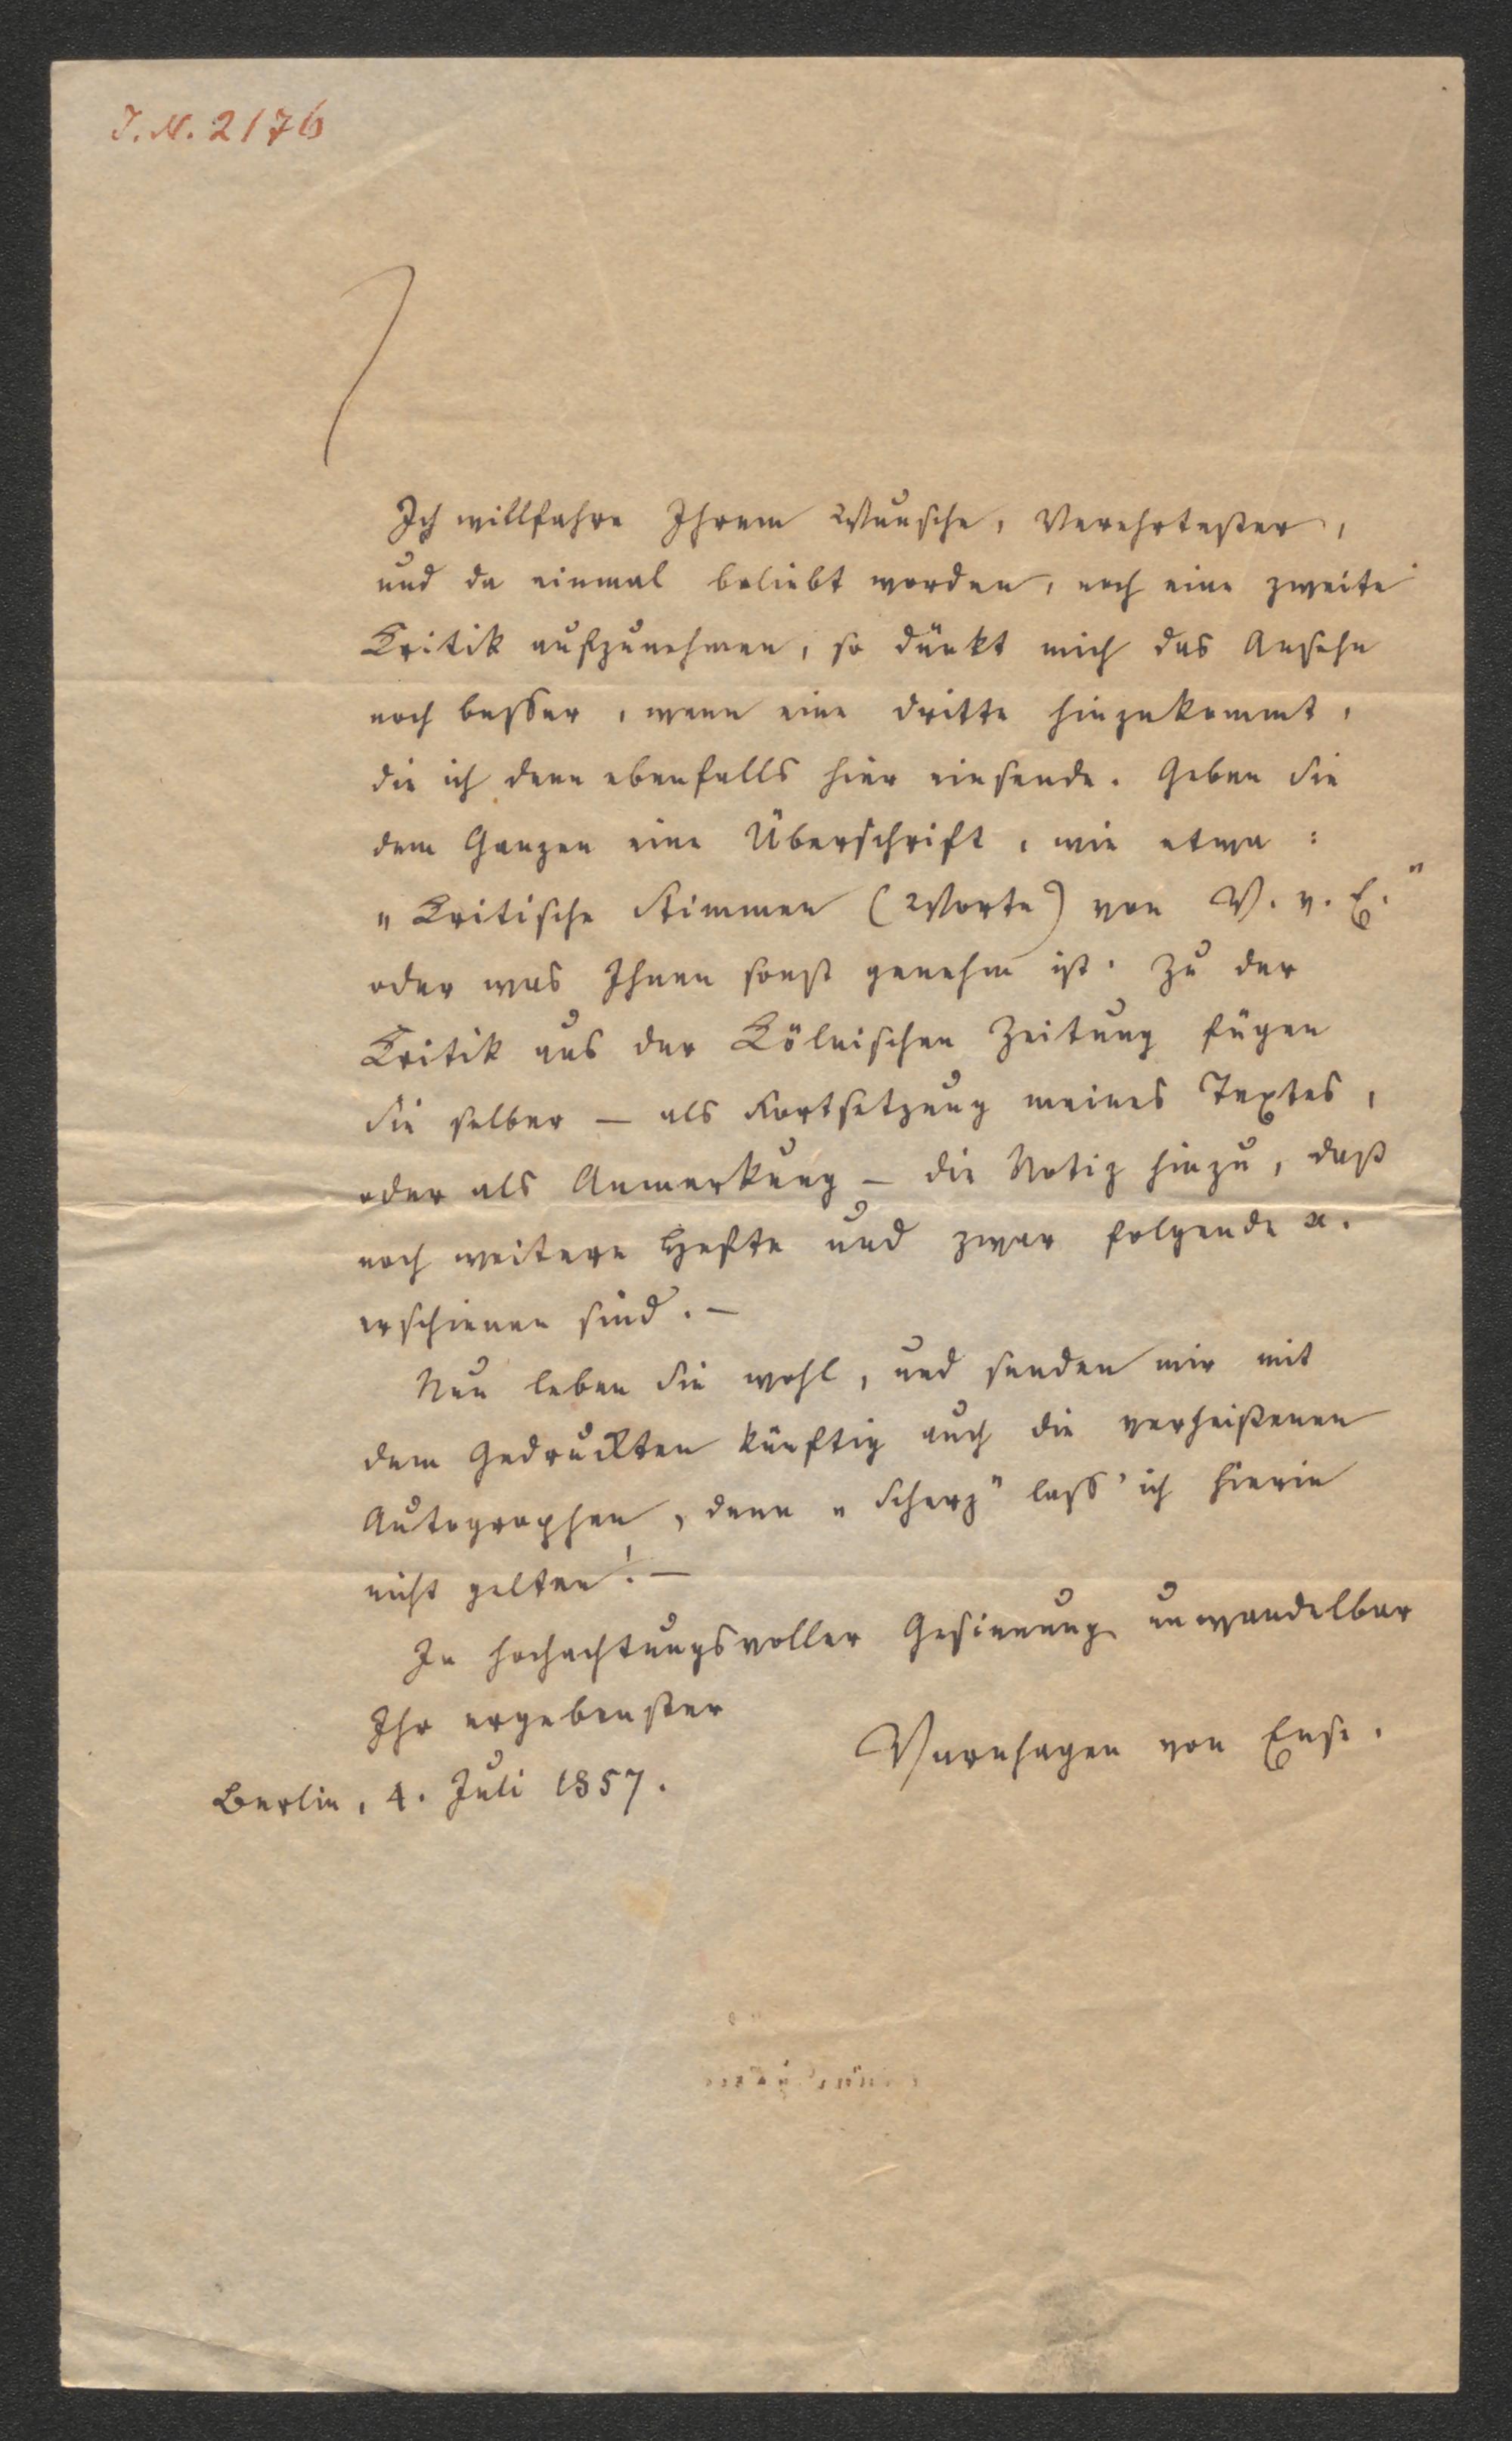 J. N. 2176
Ich willfahre Ihrem Wunsche, Verehrtester,
und da einmal beliebt worden, noch eine zweite
Kritik aufzunehmen, so dünkt mich das Ansehn
noch besser, wenn eine dritte hinzukommt,
die ich denn ebenfalls hier einsende. Geben Sie
dem Ganzen eine Überschrift, wie etwa:
„Kritische Stimmen (Worte) von V. v. E.“
oder was Ihnen sonst genehm ist. Zu der
Kritik aus der Kölnischen Zeitung fügen
Sie selber – als Fortsetzung meines Textes,
oder als Anmerkung – die Notiz hinzu, daß
noch weitere Hefte und zwar folgende
erschienen sind. –
Nun leben Sie wohl, und senden mir mit
dem Gedruckten künftig auch die verheißenen
Autographen, denn „Scherz“ lass' ich hierin
nicht gelten! –
In hochachtungsvoller Gesinnung unwandelbar
Ihr ergebenster
Varnhagen von Ense.
Berlin, 4. Juli 1857.